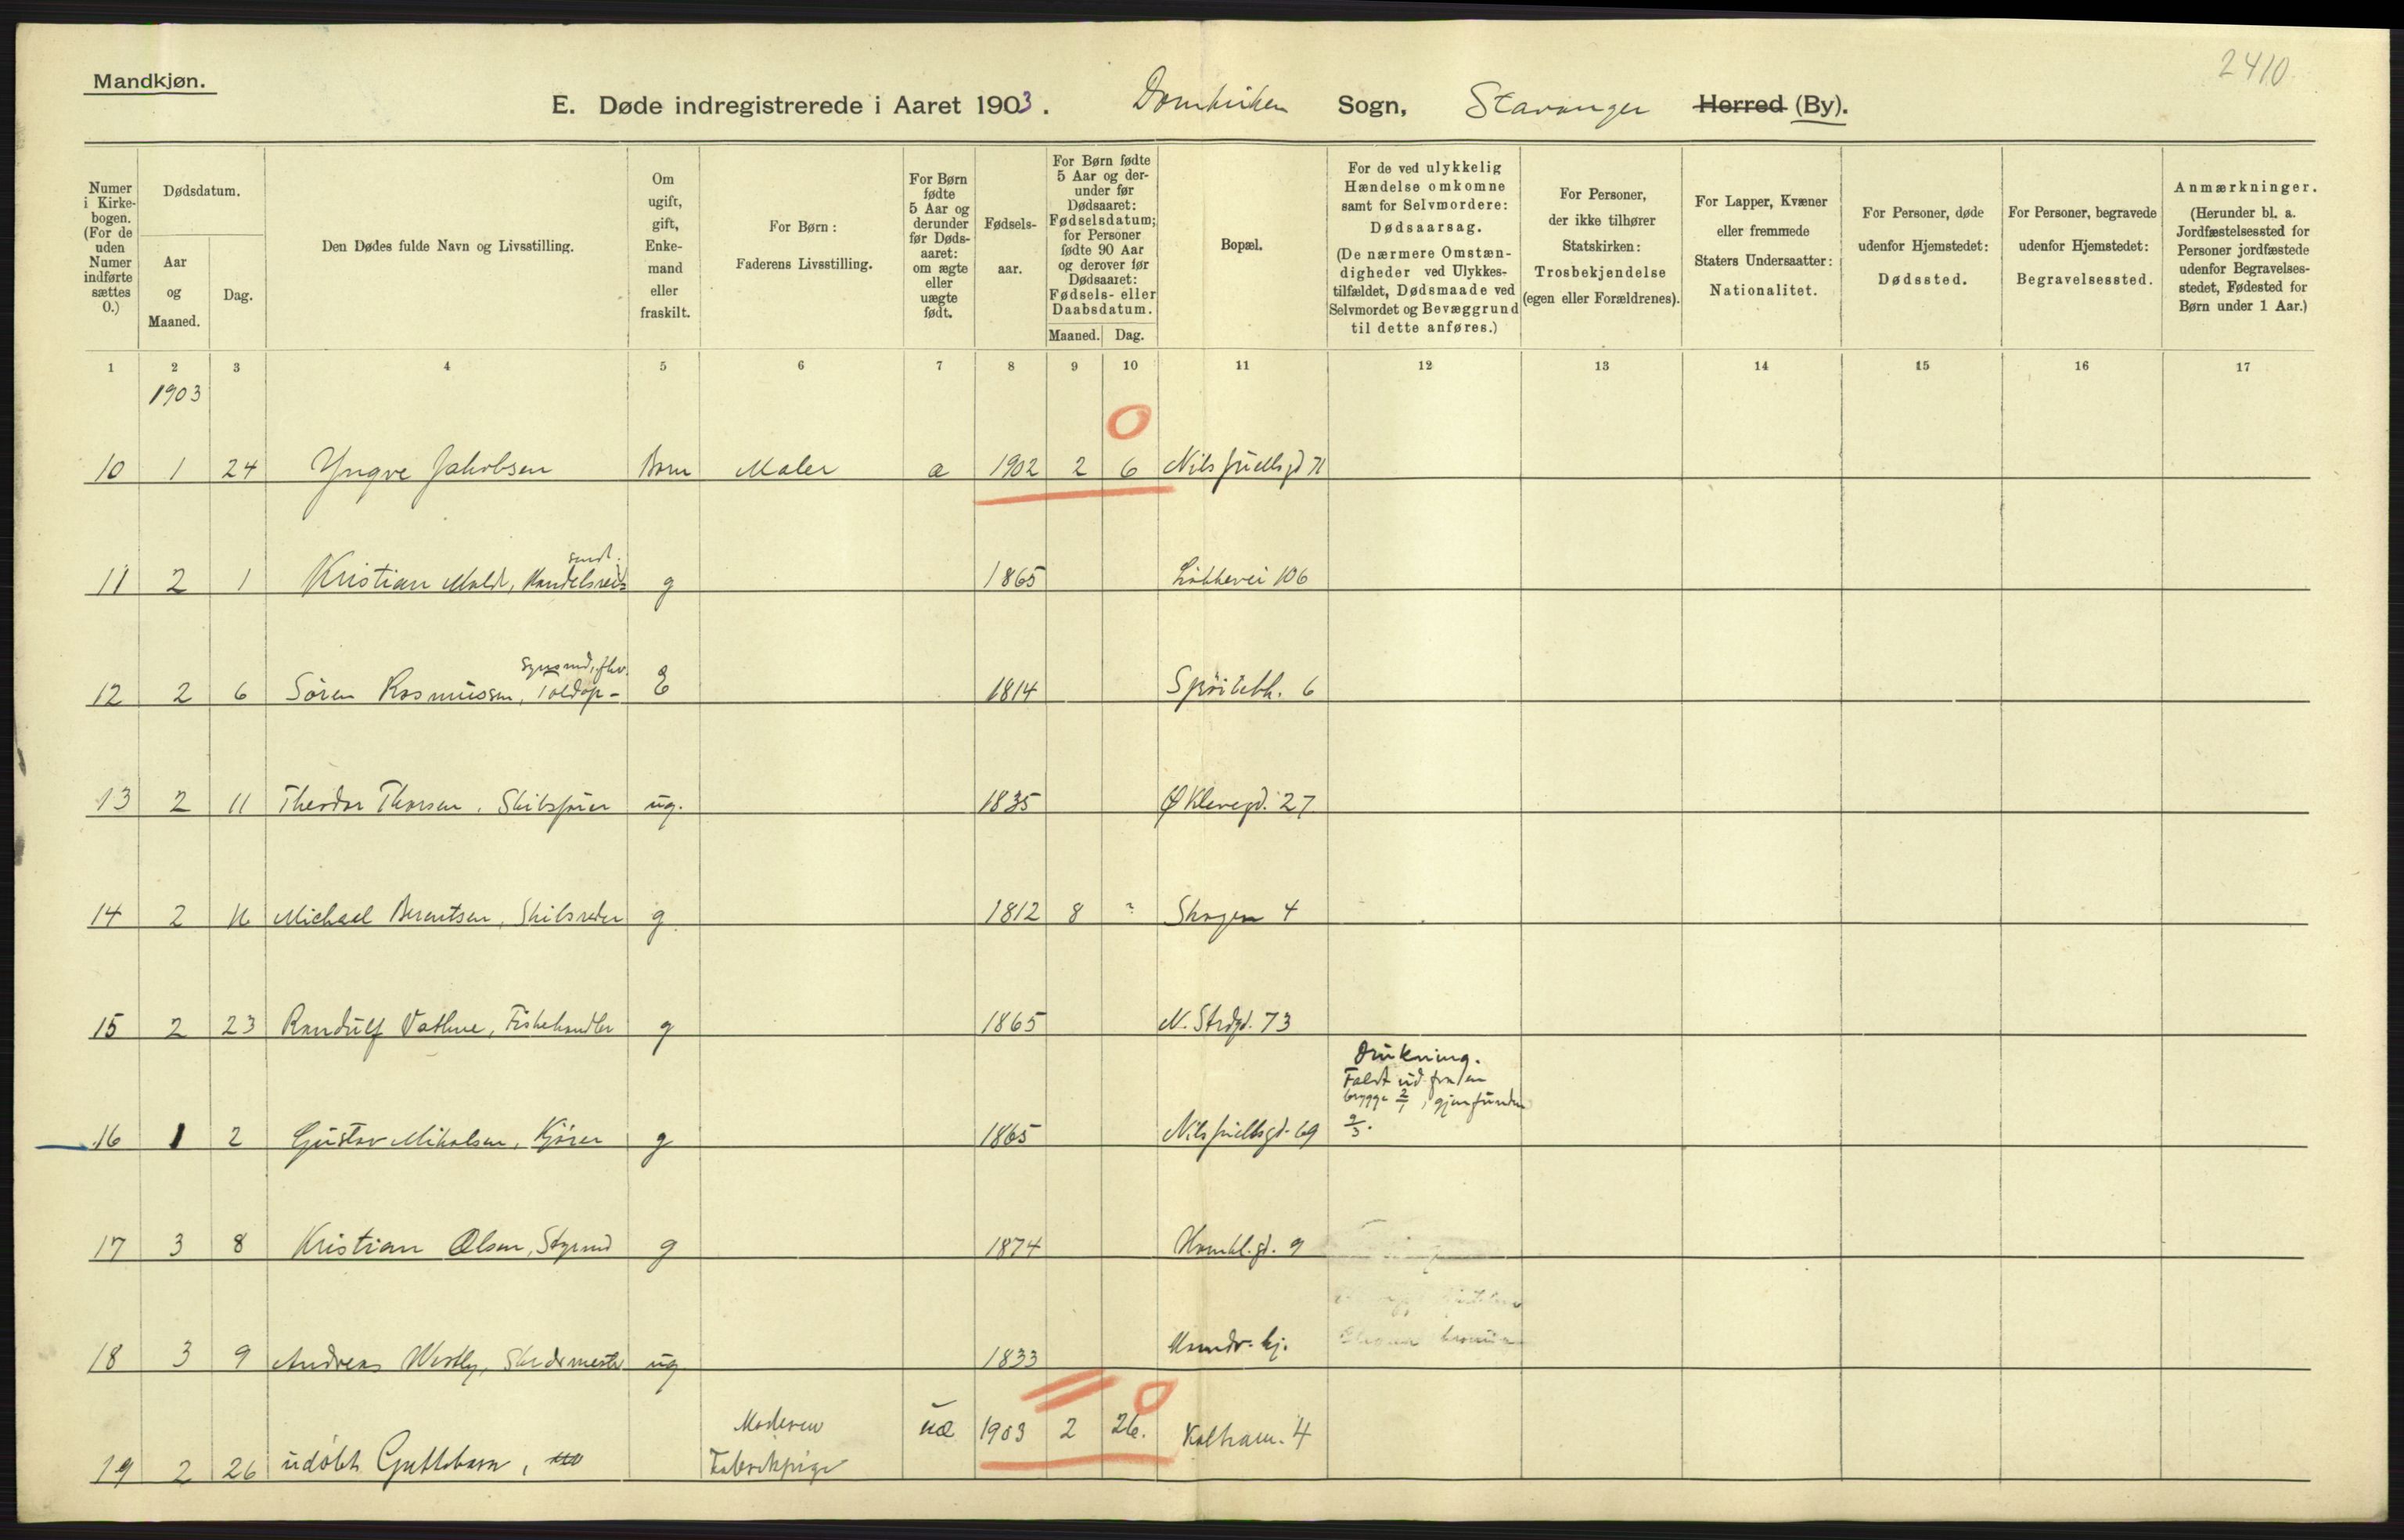 2410
Mandkjøn.
E. Døde indregistrerede i Aaret 1903. Domkirken Sogn, Stavanger Herred (By).
Numer i Kirkebogen. (For de uden Numer indførte sættes 0.)
Dødsdatum.
Aar og Maaned.
Dag.
Den Dødes fulde Navn og Livsstilling.
Om ugift, gift, Enkemand eller fraskilt.
For Børn: Faderens Livsstilling.
For Børn fødte 5 Aar og derunder før Dødsaaret: om ægte eller uægte født.
Fødselsaar.
For Børn fødte 5 Aar og derunder før Dødsaaret: Fødselsdatum; for Personer fødte 90 Aar og derover før Dødsaaret: Fødsels- eller Daabsdatum.
Maaned. Dag.
Bopæl.
For de ved ulykkelig Hændelse omkomne samt for Selvmordere: Dødsaarsag. (De nærmere Omstændigheder ved Ulykkestilfældet, Dødsmaade ved Selvmordet og Bevæggrund til dette anføres.)
For Personer, der ikke tilhører Statskirken: Trosbekjendelse (egen eller Forældrenes).
For Lapper, Kvæner eller fremmede Staters Undersaatter: Nationalitet.
For Personer, døde udenfor Hjemstedet: Dødssted.
For Personer, begravede udenfor Hjemstedet: Begravelsessted.
Anmærkninger. (Herunder bl. a. Jordfæstelsessted for Personer jordfæstede udenfor Begravelsesstedet, Fødested for Børn under 1 Aar.)
1 2 3 4 5 6 7 8 9 10 11 12 13 14 15 16 17
1903
10 1 24 Yngve Jakobsen Barn Maler æ 1902 2 6 Nils Juelsgd 71
11 2 1 Kristian Malde, Handelsreisend. g 1865 Løkkevei 106
12 2 6 Sören Rasmussen, Toldopsynsmd, fhv. E 1814 6
13 2 11 Theodor Thorsen, Skibsfører ug. 1835 Ø Klevegd. 27
14 2 Michael Berentsen, Skibsreder g 1812 8 ? Skagen 4
15 2 23 Randulf Vathne, Fiskehandler g 1865 N. Strdgd. 73
Drukning.
Faldt ud fra en
brygge 2/1, gjenfunden
16 1 2 Gustav Mikalsen, Kjører g 1865 Nils Juellsgd. 69 9/3.
17 3 8 Kristian Olsen, Styrmd g 1874 Hamkl.gd. 9
18 3 9 Andreas Westby, ug 1833
19 2 26 udøbt Guttebarn, Moderen Fabrikpige uæ 1903 2 26. 4